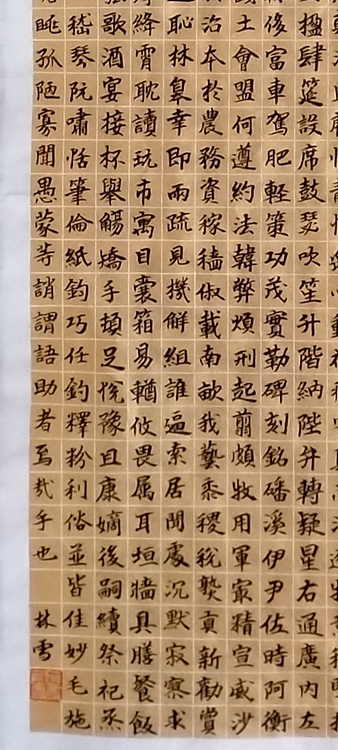 楹肆筵設席鼓瑟吹笙升階納陛弁轉疑星右通廣內左
侈富車駕肥輕策功茂實勒碑刻銘磻溪伊尹佐時阿衡
土會盟何遵約法韓弊煩刑起翦頗牧用軍最精宣威沙
治本於農務資稼穡俶載南畝我藝黍稷稅熟貢新勸賞
恥林皋幸即兩疏見機解組誰逼索居閒處沉默寂寥求
絳霄耽讀玩市寓目囊箱易輶攸畏属耳垣牆具膳餐飯
歌酒宴接杯舉觴矯手頓足悅豫且康嫡後嗣續祭祀烝
嵇琴阮嘯恬筆倫紙鈞巧任釣釋紛利俗並皆佳妙毛施
眺孤陋寡聞愚蒙等誚謂語助者焉哉乎也 林雪